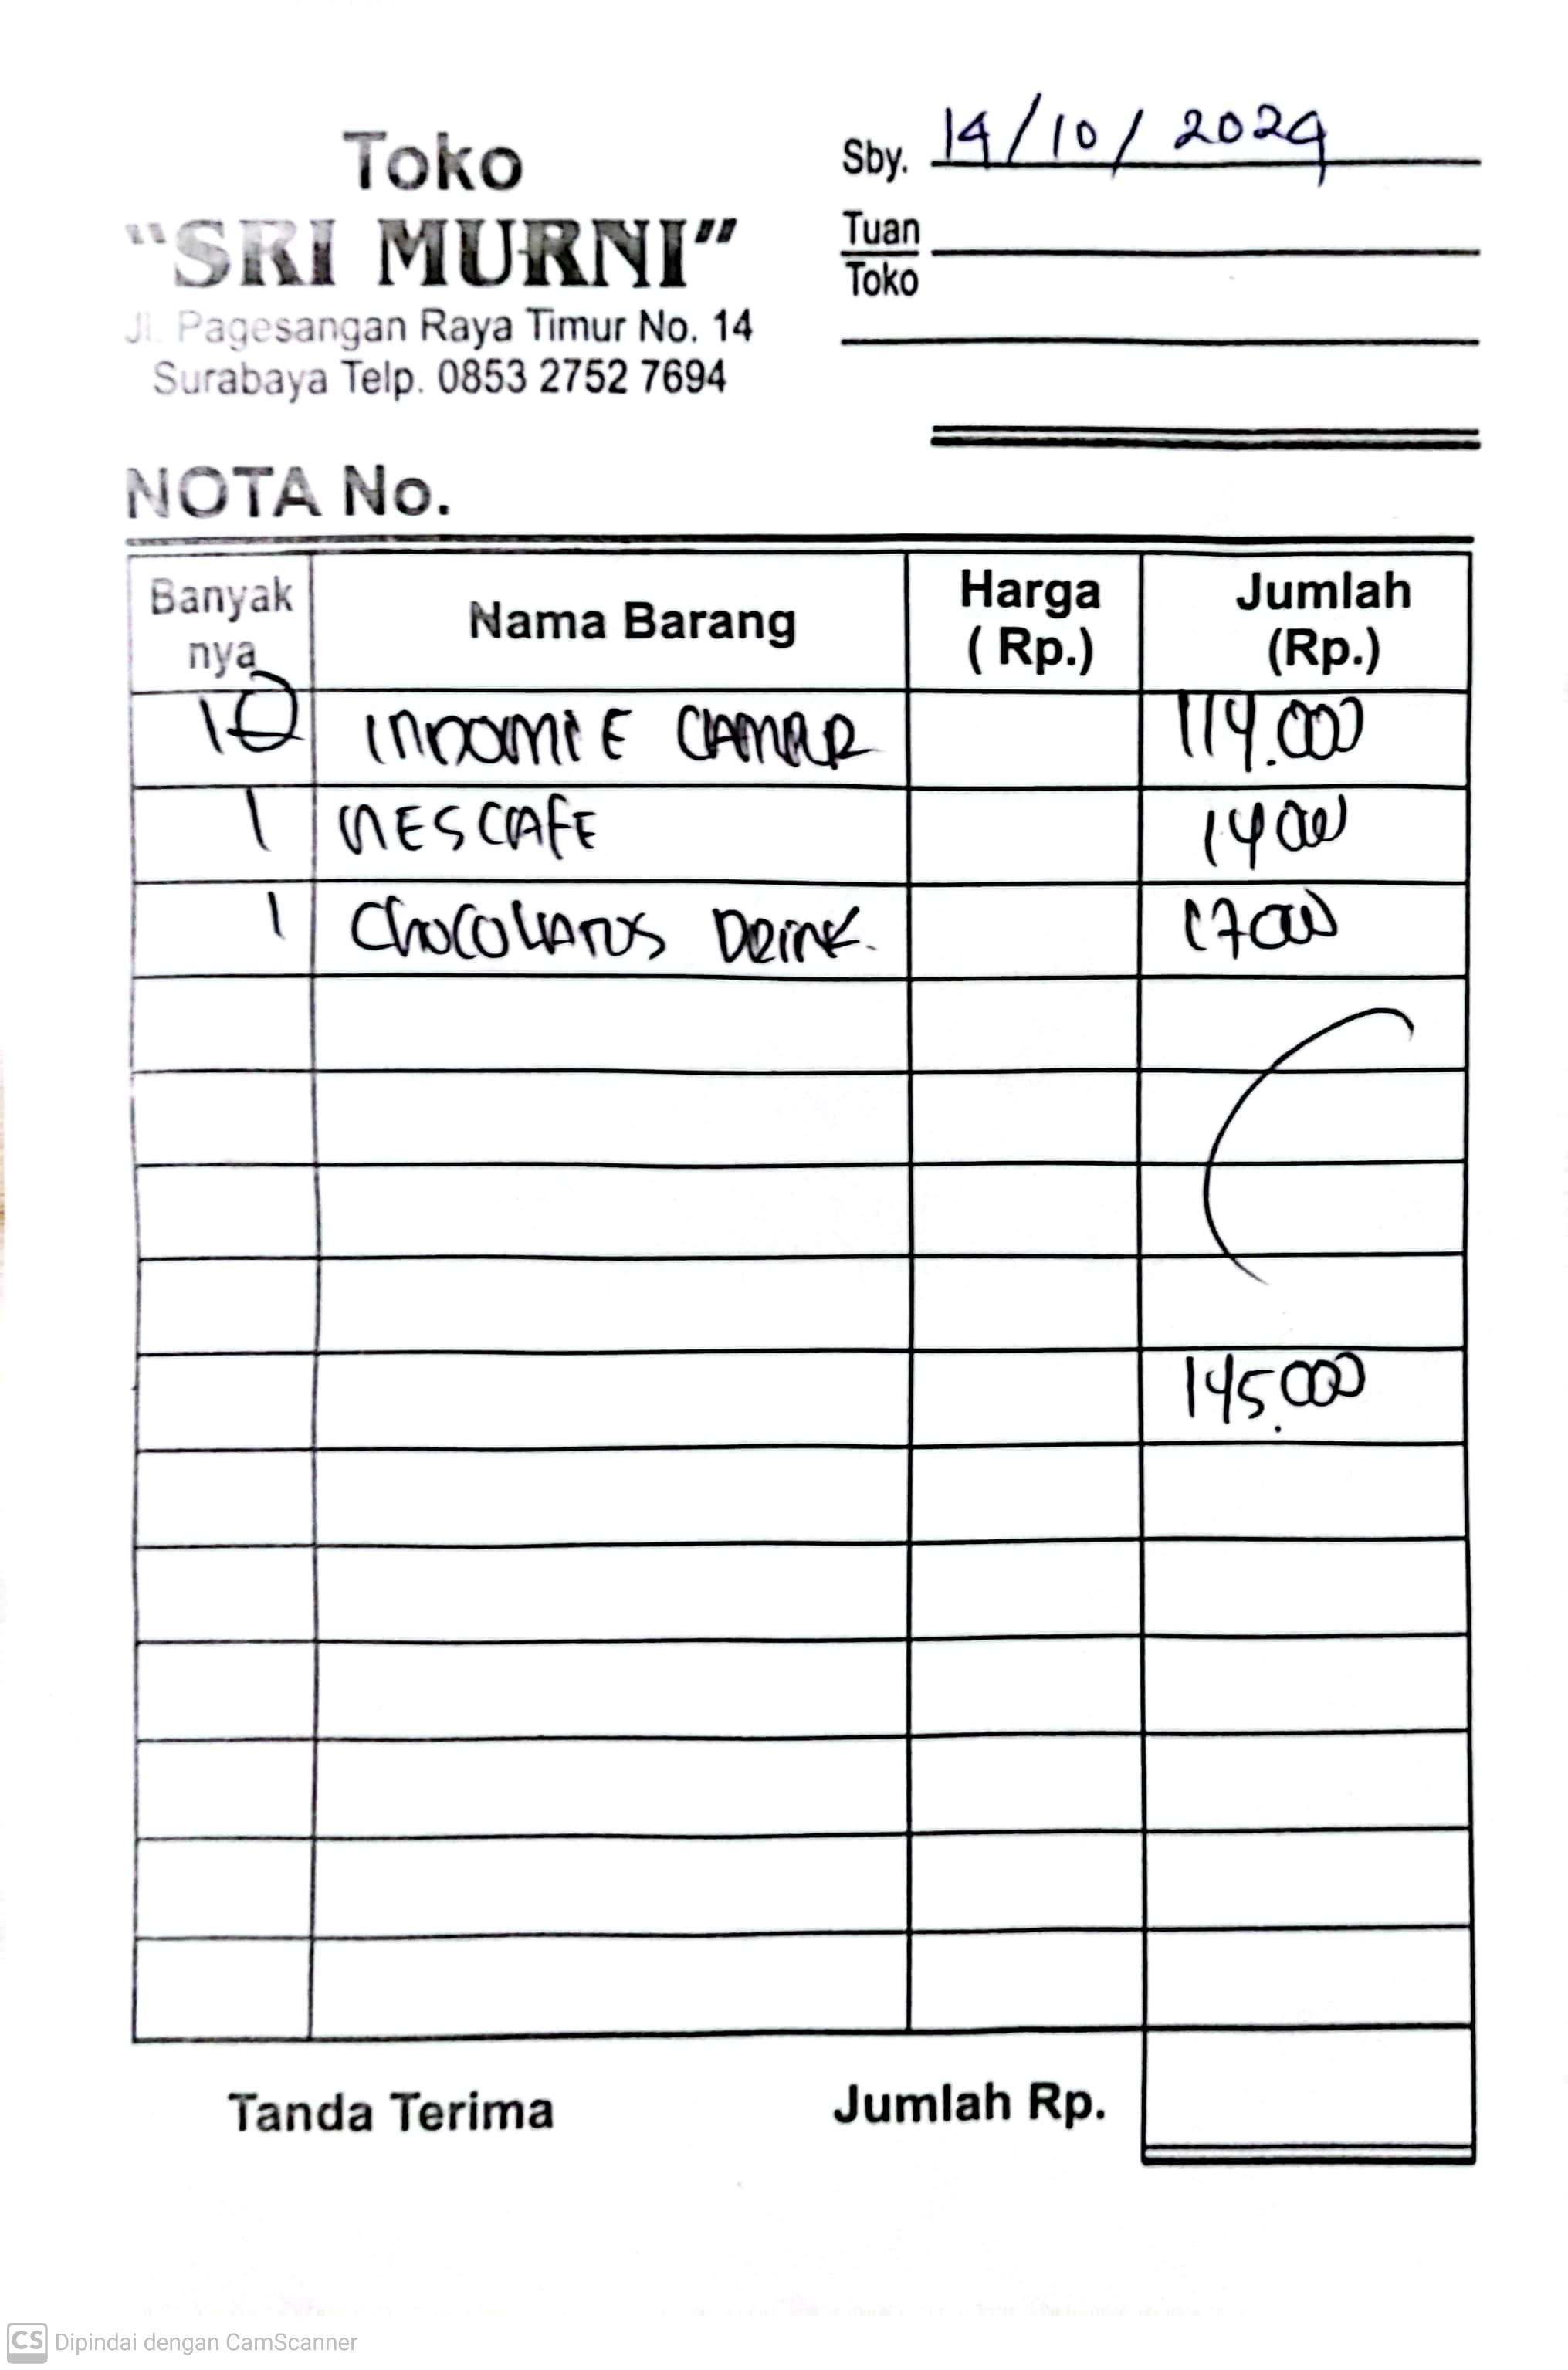 Toko
"SRI MURNI"
Jl. Pagesangan Raya Timur No. 14
Surabaya Telp. 0853 2752 7694
Sby. 14/10/2024
Tuan
Toko
NOTA No.
Banyak nya Nama Barang Harga (Rp.) Jumlah (Rp.)
10 INDOMIE 114.000
1 NESCAFE 14000
1 CHOCOLATOS DRINK. 17000
145.000
Tanda Terima Jumlah Rp.
CS Dipindai dengan CamScanner